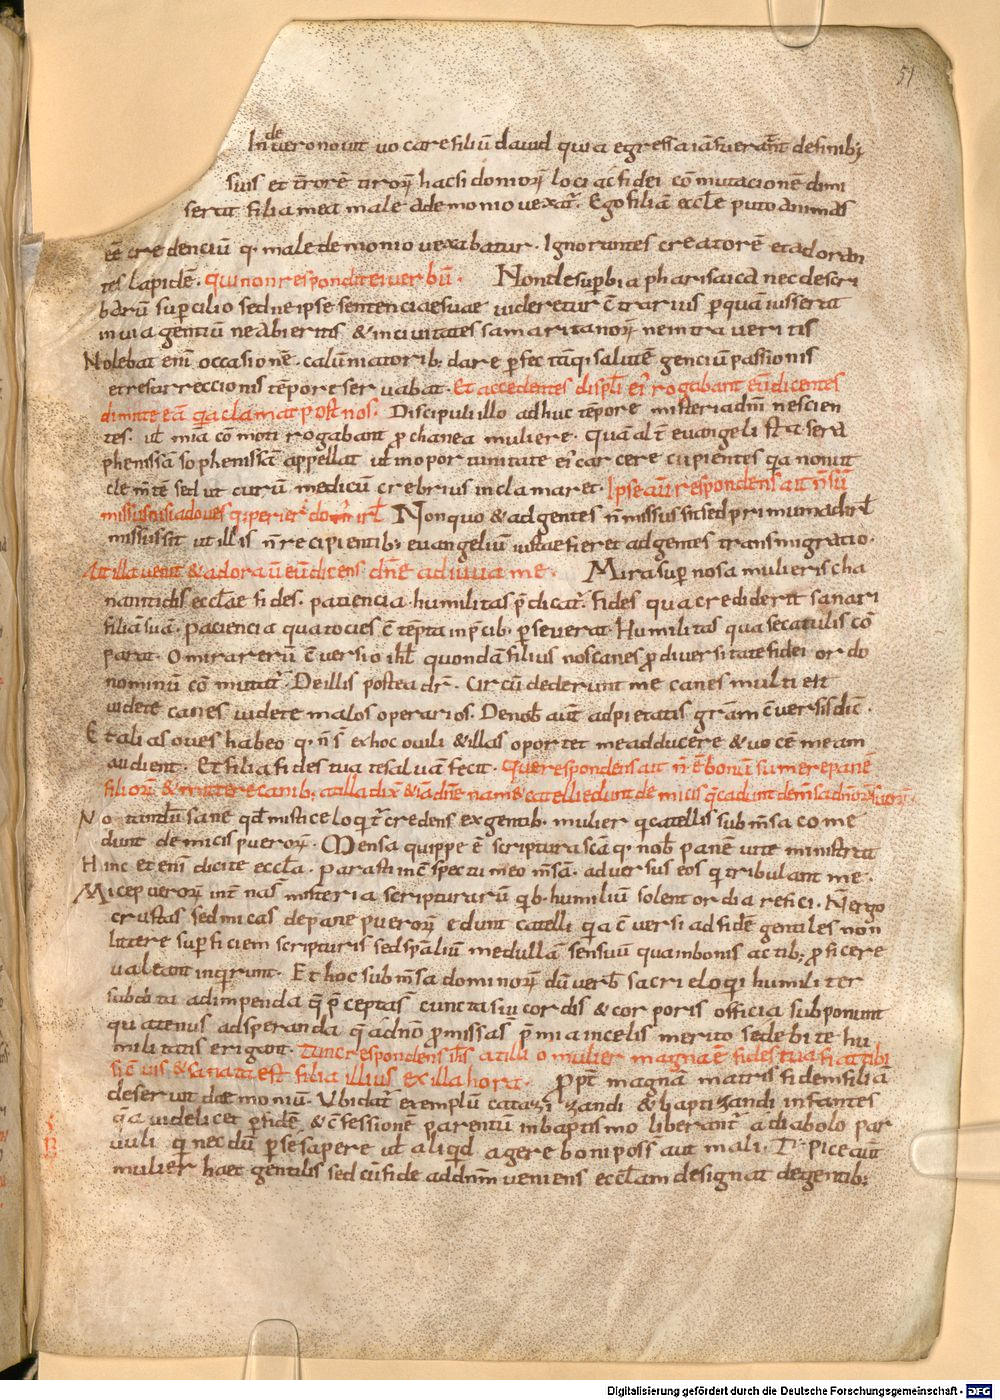 51
Inde vero novit vocare filiū david quia egressa iā fuerat de finib;
suis et errorē tiriorꝝ hac sidoniorꝝ loci ac fidei cōmutacionē dimi
serat filia mea male a demonio vexat̄. Ego filiā eccl̄e puto animas
eē credenciū q. male demonio vexabatur. Ignorantes creatorē et adoran
tes lapidē. Qui non respondit ei verbū. Non de sup̄bia pharisaica nec de scri
barū sup̄cilio sed ne ipse sentenciae suae videretur c̄trarius p quā iusserat
in via gentiū ne abieritis & in civitates samaritanorꝝ ne intraveritis
Nolebat enī occasionē. calūmatorib; dare p̄fectāqi salutē genciū passionis
et resurreccionis tēpore servabat. Et accedentes discipl̄i ei' rogabant eū dicentes
dimitte eā q̄a clamat post nos. Discipuli illo adhuc tēpore misteria dn̄i nescien
tes. vl̄ mīa cōmoti rogabant p̄ chanea muliere. quā alt̄ evangelista sera
phenissā sophenissā appellat vl̄ inoportunitate ei' carcere cupientes q̄a non ut
clem̄te sed ut curū medicū crebrius inclamaret. Ipse aū respondens ait n̄ sū
missus nisi ad oves q. perier̄ dom' isrl̄ Non quo & ad gentes n̄ missus sit sed primum ad isrl̄
missus sit ut illis n̄ recipientib; evangeliū iusta fieret ad gentes transmigratio.
At illa venit & adoravit eū dicens. dn̄e adiuva me. Mira sup nosa mulieris cha
nanitidis eccl̄ae fides. paciencia. humilitas p̄dicat̄. Fides qua crediderit sanari
filiā suā. Paciencia qua tocies c̄tēpta in p̄cib. p̄severat. Humilitas qua se catulis cō
parat. O mira rerū c̄versio isrl̄ quondā filius nos canes p̄ diversitate fidei ordo
nominū cōmutat̄. De illis postea dr̄. Circūdederunt me canes multi et
videte canes videte malos operarios. De nob̄ aut̄ ad pietatis grām c̄versis dic̄.
Et alias oves habeo q. n̄ s̄ ex hoc ovili & illas oportet me adducere & vocē meam
audient. Et filia fides tua te salvā fecit. Qui respondens ait n̄ ē bonū sumere panē
filiorꝝ & mittere canib; at illa dix̄ & iā dn̄e nam & catelli edunt de micis q̄ cadunt de m̄sa dn̄orꝝ suorꝝ.
Notandū sane qd̄ mistice loq̄t̄ credens ex gentib. mulier q catellis sub m̄sa come
dunt de micis puerorꝝ. Mensa quippe ē scriptura scā q. nob̄ panē vite ministrat
Hinc et enī dicit eccl̄a. Parasti in c̄spectu meo m̄sā. adversus eos q tribulant me.
Mice puerorꝝ int̄nas misteria scripturarū qb. humiliū solent ordia refici. N̄ ergo
crustas sed micas de pane puerorꝝ edunt catelli q̄a c̄versi ad fidē gentiles non
littere sup̄ficiem scripturis sed sp̄aliū medullā sensuū qua in bonis actib; p̄ficere
valeant inq̄runt. Et hoc sub m̄sa dominorꝝ dū verb̄ sacri eloqi humiliter
subditi ad impenda q̄ p̄ceptas cuncta sui cordis & corporis officia subponunt
quatenus ad speranda q̄ a dn̄o p̄missas p̄mia in celis merito se debite hu
militatis erigant. Tunc respondens ih̄s at illi o mulier magna ē fides tua fiat tibi
sic̄ vis & sanata est filia illius ex illa hora. P̄pt̄ magnā matris fidem filiā
deseruit daemoniū. Ubi dat̄ exemplū catazizandi & baptizandi infantes
q̄a videlicet p̄ fidē & c̄fessionē parentū in baptismo liberant̄ a diabolo par
vuli qi necdū p̄ se sapere vl̄ aliqd̄ agere boni poss̄ aut mali. Tipice aut̄
mulier haec gentilis sed cū fide ad dn̄m veniens eccl̄am designat de gentib;
Digitalisierung gefördert durch die Deutsche Forschungsgemeinschaft - DFG